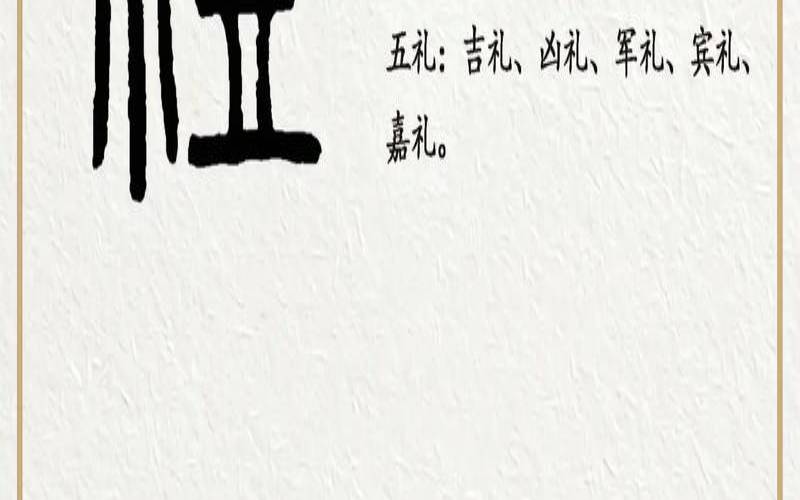 五礼：吉礼、凶礼、军礼、宾礼、
嘉礼。